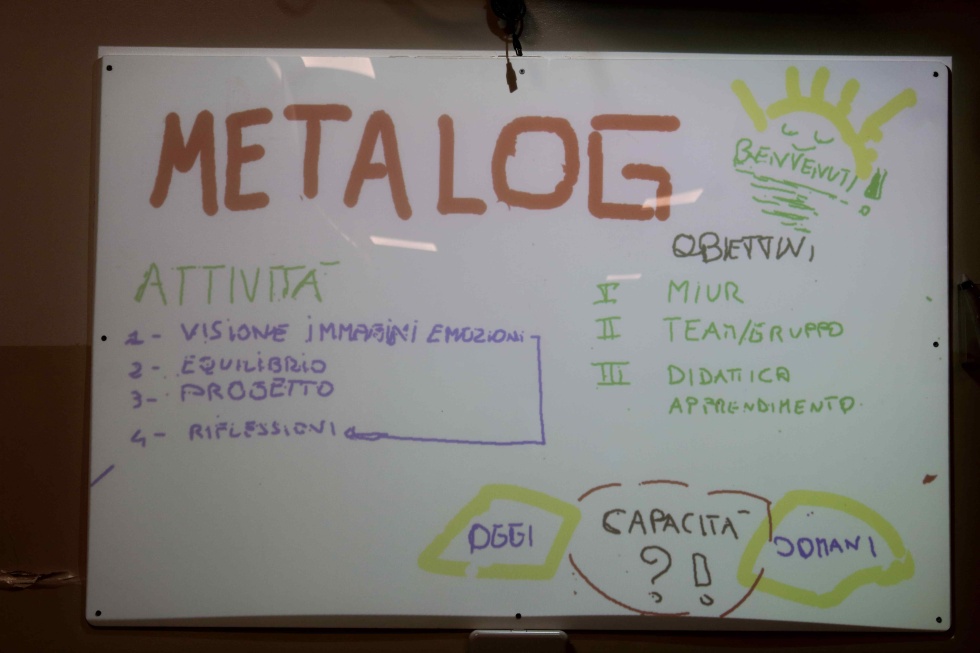 METALOG
BENVENUTI!
OBIETTIVI
ATTIVITÀ
I MIUR
1- VISIONE IMMAGINI EMOZIONI
II TEAM/GRUPPO
2- EQUILIBRIO
3- PROGETTO
III DIDATTICA
APPRENDIMENTO
4- RIFLESSIONI
OGGI
CAPACITÀ
?!
DOMANI